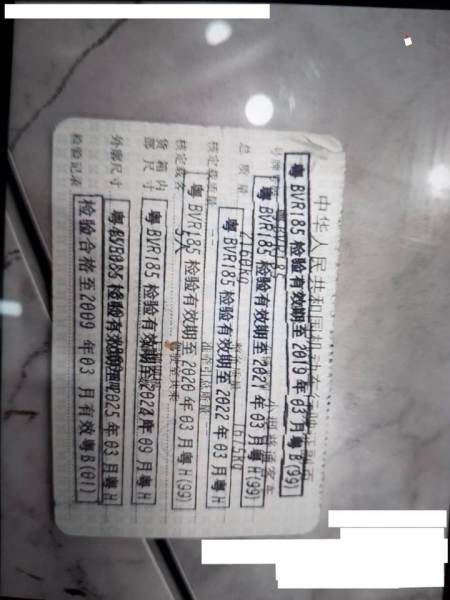 中华人民共和国机动车行驶证副页
号牌号码
总质量 2160kg
核定载质量
核定载客 5人
货箱内部尺寸
外廓尺寸
检验记录
准牵引总质量
粤BVR185检验有效期至2019年03月粤B(99)
粤BVR185检验有效期至2021年03月粤H(99)
粤BVR185检验有效期至2022年03月粤H
粤BVR185检验有效期至2020年03月粤H(99)
粤BVR185检验有效期至2024年09月粤H
检验有效期至2025年03月粤H
检验合格至2009年03月有效粤B(01)